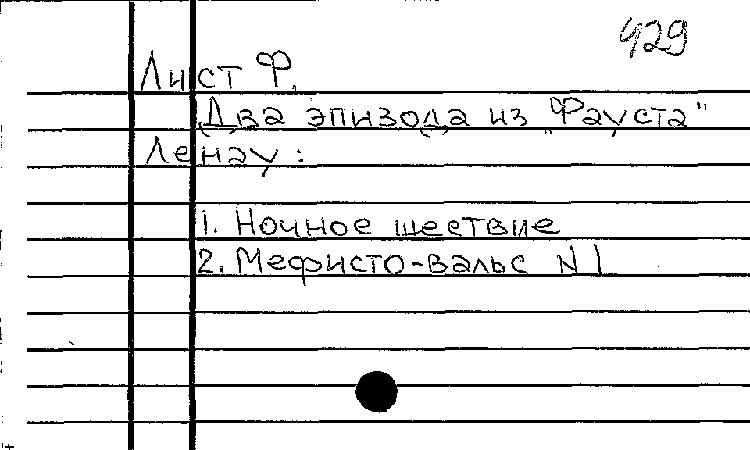 429
Лист Ф.
Два эпизода из "Фауста"
Ленау:
1. Ночное шествие
2. Мефисто-вальс N 1